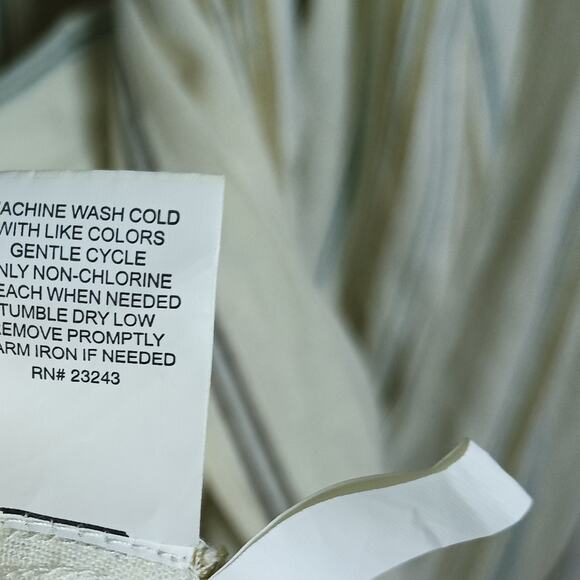 ACHINE WASH COLD
WITH LIKE COLORS
GENTLE CYCLE
NLY NON-CHLORINE
EACH WHEN NEEDED
TUMBLE DRY LOW
REMOVE PROMPTLY
ARM IRON IF NEEDED
RN# 23243